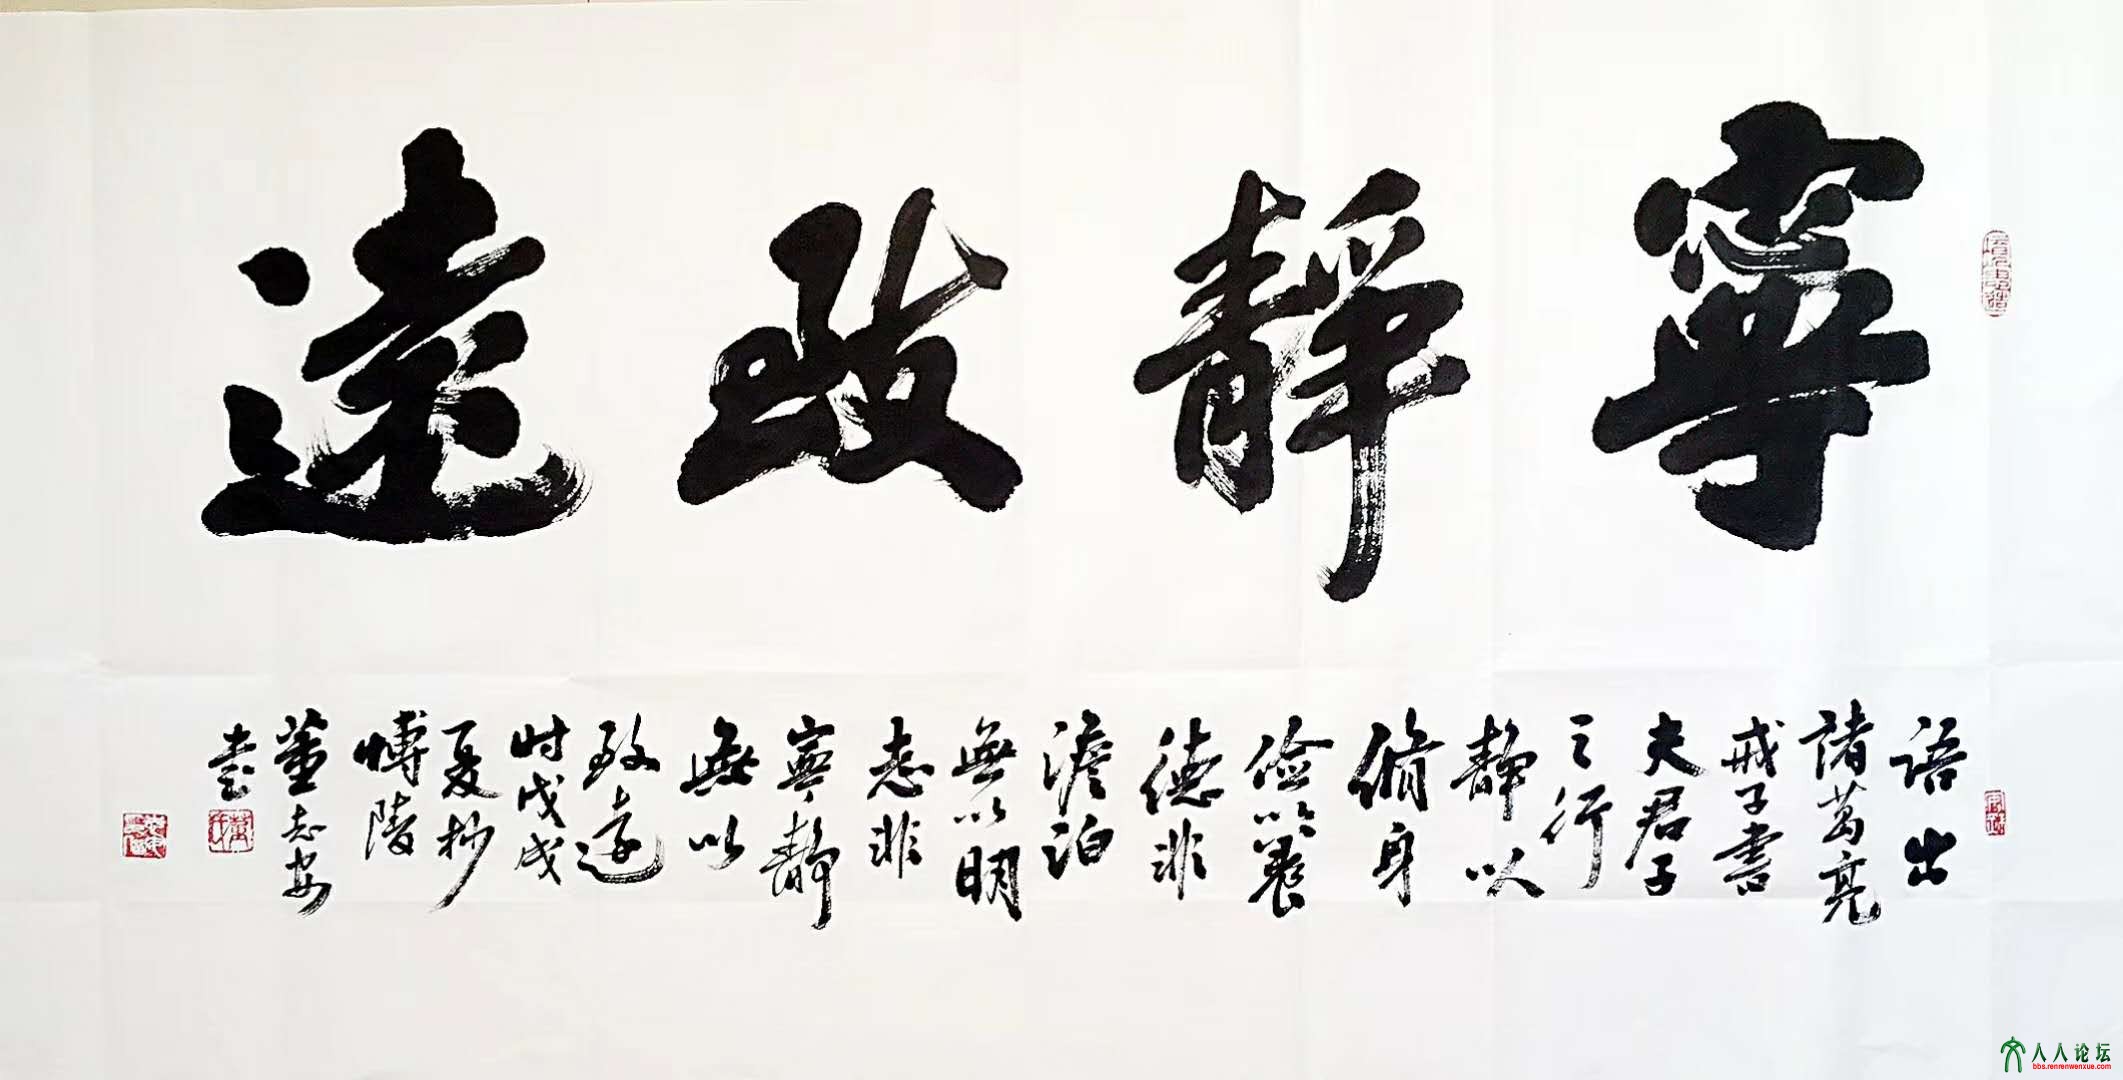 寧靜致遠
語出
諸葛亮
戒子書
夫君子
之行
靜以
脩身
儉以養
德非
澹泊
無以明
志非
寧靜
無以
致遠
时戊戌
夏杪
博陵
董志安
書
人人论坛
bbs.renrenwenxue.com